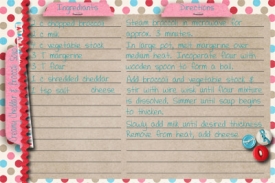 Ingredients
Directions
c chopped broccoli
c milk
c vegetable stock
T margarine
T flour
c shredded cheddar
cheese
Steam broccoli in microwave for
approx. 3 minutes.
In large pot, melt margarine over
medium heat. Incorporate flour with
wooden spoon to form a ball.
Add broccoli and vegetable stock &
stir with wire whisk until flour mixture
is dissolved. Simmer until soup begins
to thicken.
Slowly add milk until desired thickness.
Remove from heat, add cheese